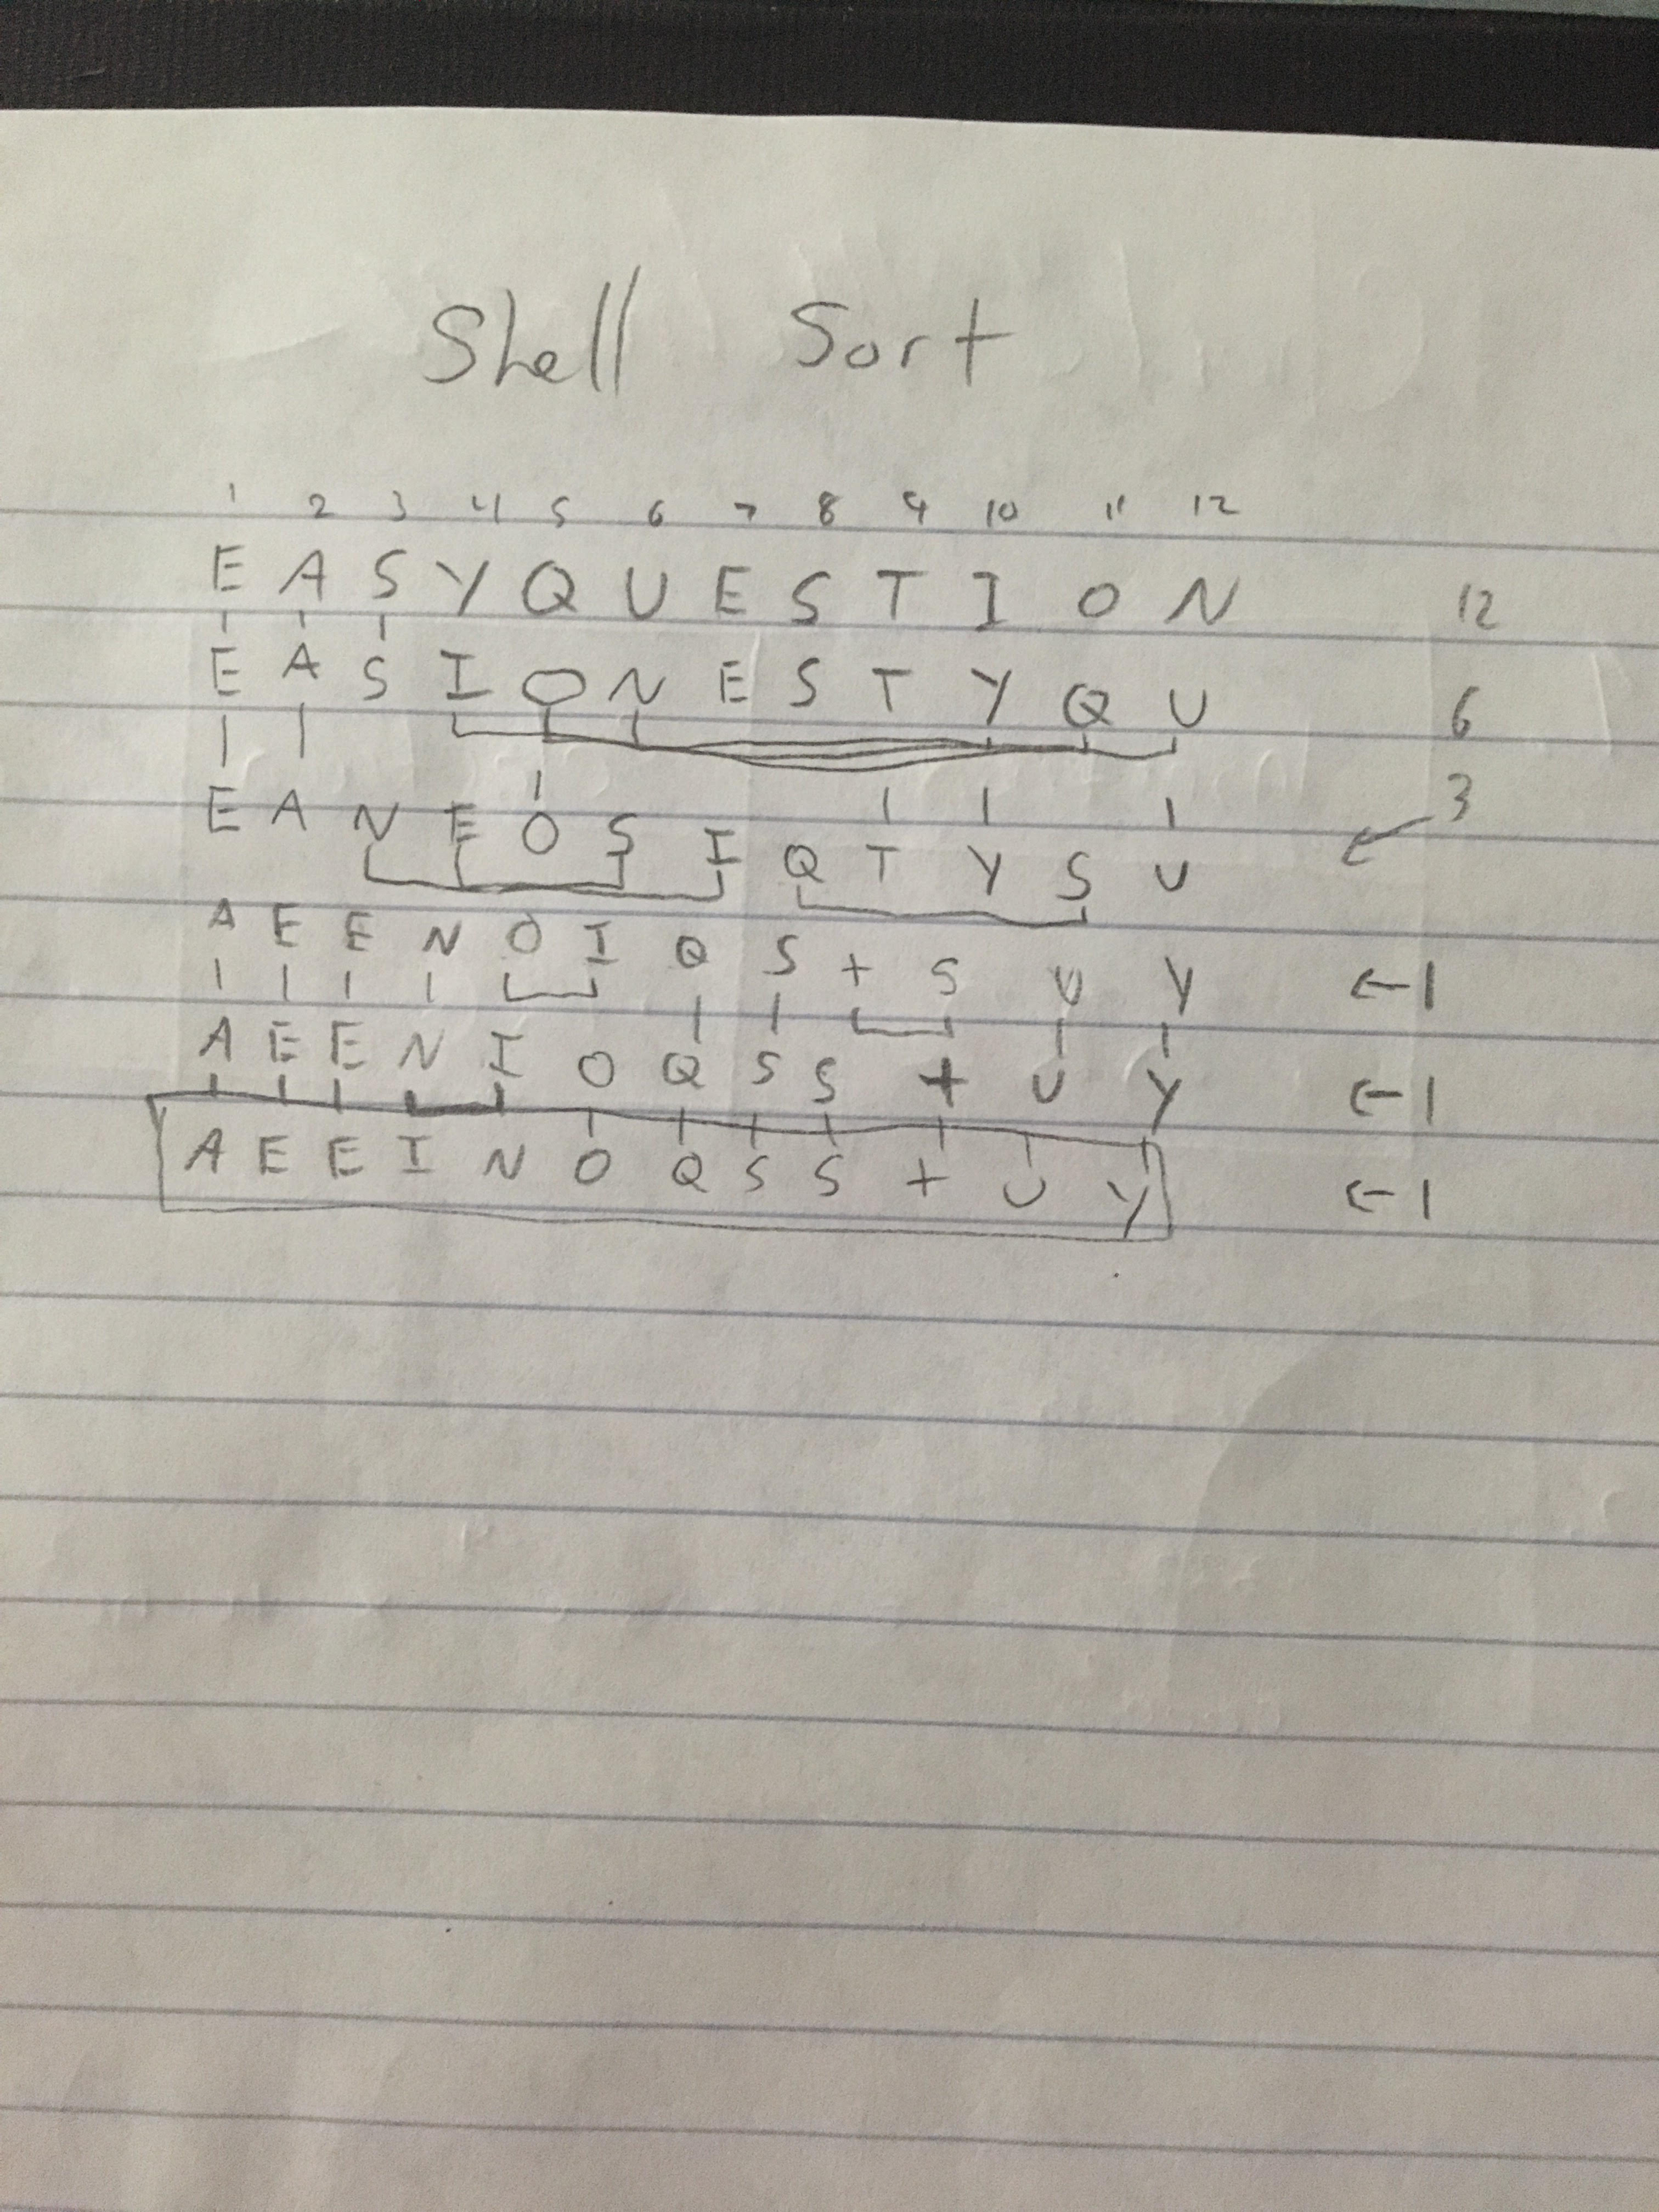 Shell Sort
1 2 3 4 5 6 7 8 9 10 11 12
E A S Y Q U E S T I O N 12
E A S I O N E S T Y Q U 6
E A N E O S I Q T Y S U ← 3
A E E N O I Q S t S U Y ← 1
A E E N I O Q S S t U Y ← 1
A E E I N O Q S S t U Y ← 1